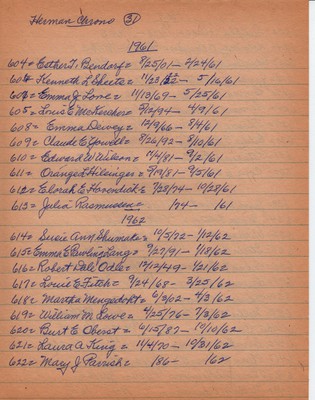 Herman Chrono 31
1961
604 = Esther T. Bendorf = 8/25/01 - 2/24/61
604 Kenneth L Skeets = 11/23/22 - 5/16/61
604 = Emma J Lowe = 11/13/69 - 5/25/61
605 = Louis E McKerchers = 9/12/94 - 4/9/61
608 = Emma Dewey = 12/9/66 - 8/4/61
609 = Claude E Yowell = 8/26/92 - 8/10/61
610 = Edward W Wilson = 7/4/81 - 9/2/61
611 = Orange L Hilsinger = 9/19/81 - 9/5/61
612 = Elorah E Havendick = 7/28/74 - 10/28/61
613 = Julia Rasmussen = /74 - /61
1962
614 = Susie Ann Shumake = 10/5/72 - 1/12/62
615 = Emma E Burling Lang = 9/27/91 - 1/18/62
616 = Robert Dale Odle = 12/12/49 - 1/21/62
617 = Louie E Fitch = 9/24/68 - 3/25/62
618 = Martha Mengedoht = 6/3/02 - 4/3/62
619 = William M Lowe = 4/25/76 - 7/3/62
620 = Burt E Oberst = 6/15/87 - 10/10/62
621 = Laura A King = 11/4/70 - 10/31/62
622 = Mary J Parrish = /86 - /62